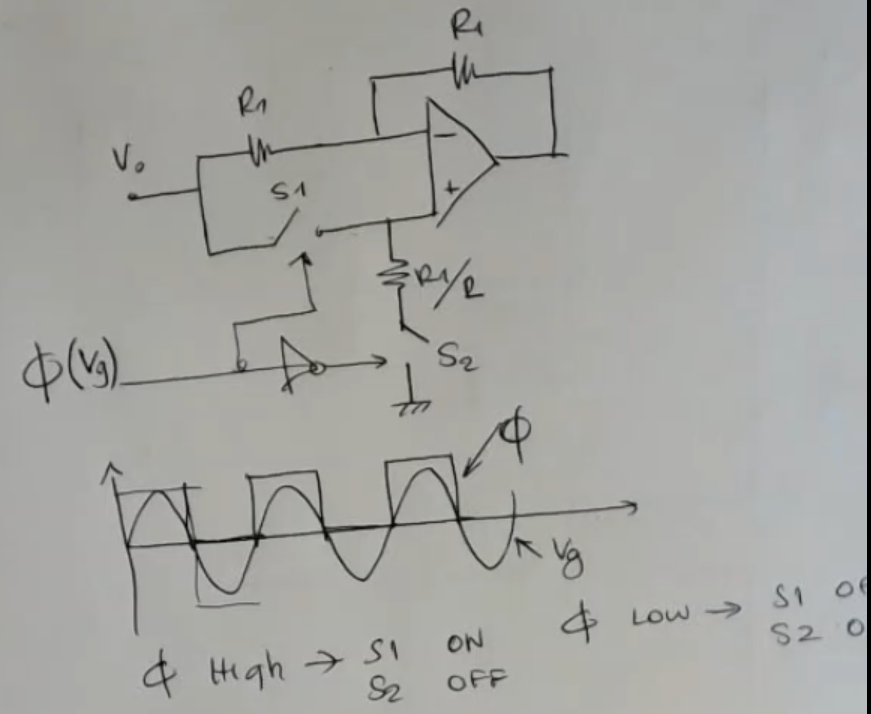 R1
R1
V0
S1
−
+
R1/2
ϕ(Vg)
S2
ϕ
Vg
ϕ High → S1 ON
S2 OFF
ϕ LOW → S1
S2